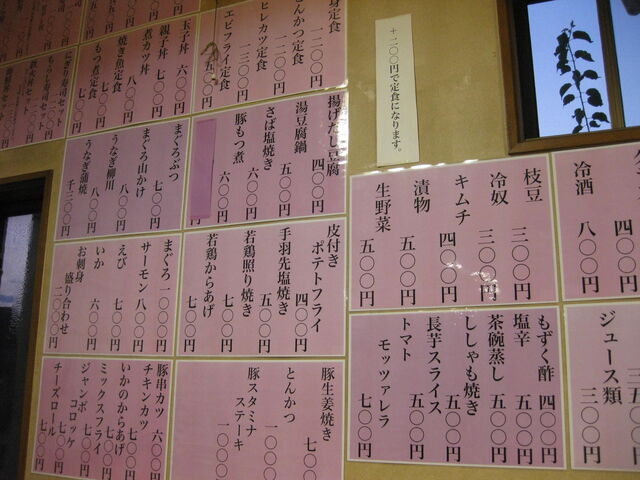 +二〇〇円で定食になります。
とんかつ定食 一二〇〇円
ヒレカツ定食 一三〇〇円
エビフライ定食
玉子丼 六〇〇円
親子丼 七〇〇円
煮カツ丼 八〇〇円
焼き魚定食
もつ煮定食 七〇〇円
揚げだし豆腐 四〇〇円
湯豆腐鍋 五〇〇円
さば塩焼き 六〇〇円
豚もつ煮 六〇〇円
まぐろぶつ 七〇〇円
まぐろ山かけ 八〇〇円
うなぎ柳川 八〇〇円
うなぎ蒲焼 千三〇〇円
枝豆 三〇〇円
冷奴 三〇〇円
キムチ 四〇〇円
漬物 五〇〇円
生野菜 五〇〇円
冷酒 八〇〇円
皮付きポテトフライ 四〇〇円
手羽先塩焼き 五〇〇円
若鶏照り焼き 七〇〇円
若鶏からあげ 七〇〇円
まぐろ 一〇〇〇円
サーモン 八〇〇円
えび 七〇〇円
いか 六〇〇円
お刺身盛り合わせ 二〇〇〇円
もずく酢 四〇〇円
塩辛 四〇〇円
茶碗蒸し 五〇〇円
ししゃも焼き 五〇〇円
長芋スライス 五〇〇円
トマトモッツァレラ 七〇〇円
ジュース類 三〇〇円
豚生姜焼き 七〇〇
とんかつ 一〇〇
豚スタミナステーキ 一〇〇
豚串カツ 六〇〇円
チキンカツ 七〇〇円
いかのからあげ 七〇〇
ミックスフライ
ジャンボコロッケ 七〇〇円
チーズロール 七〇〇